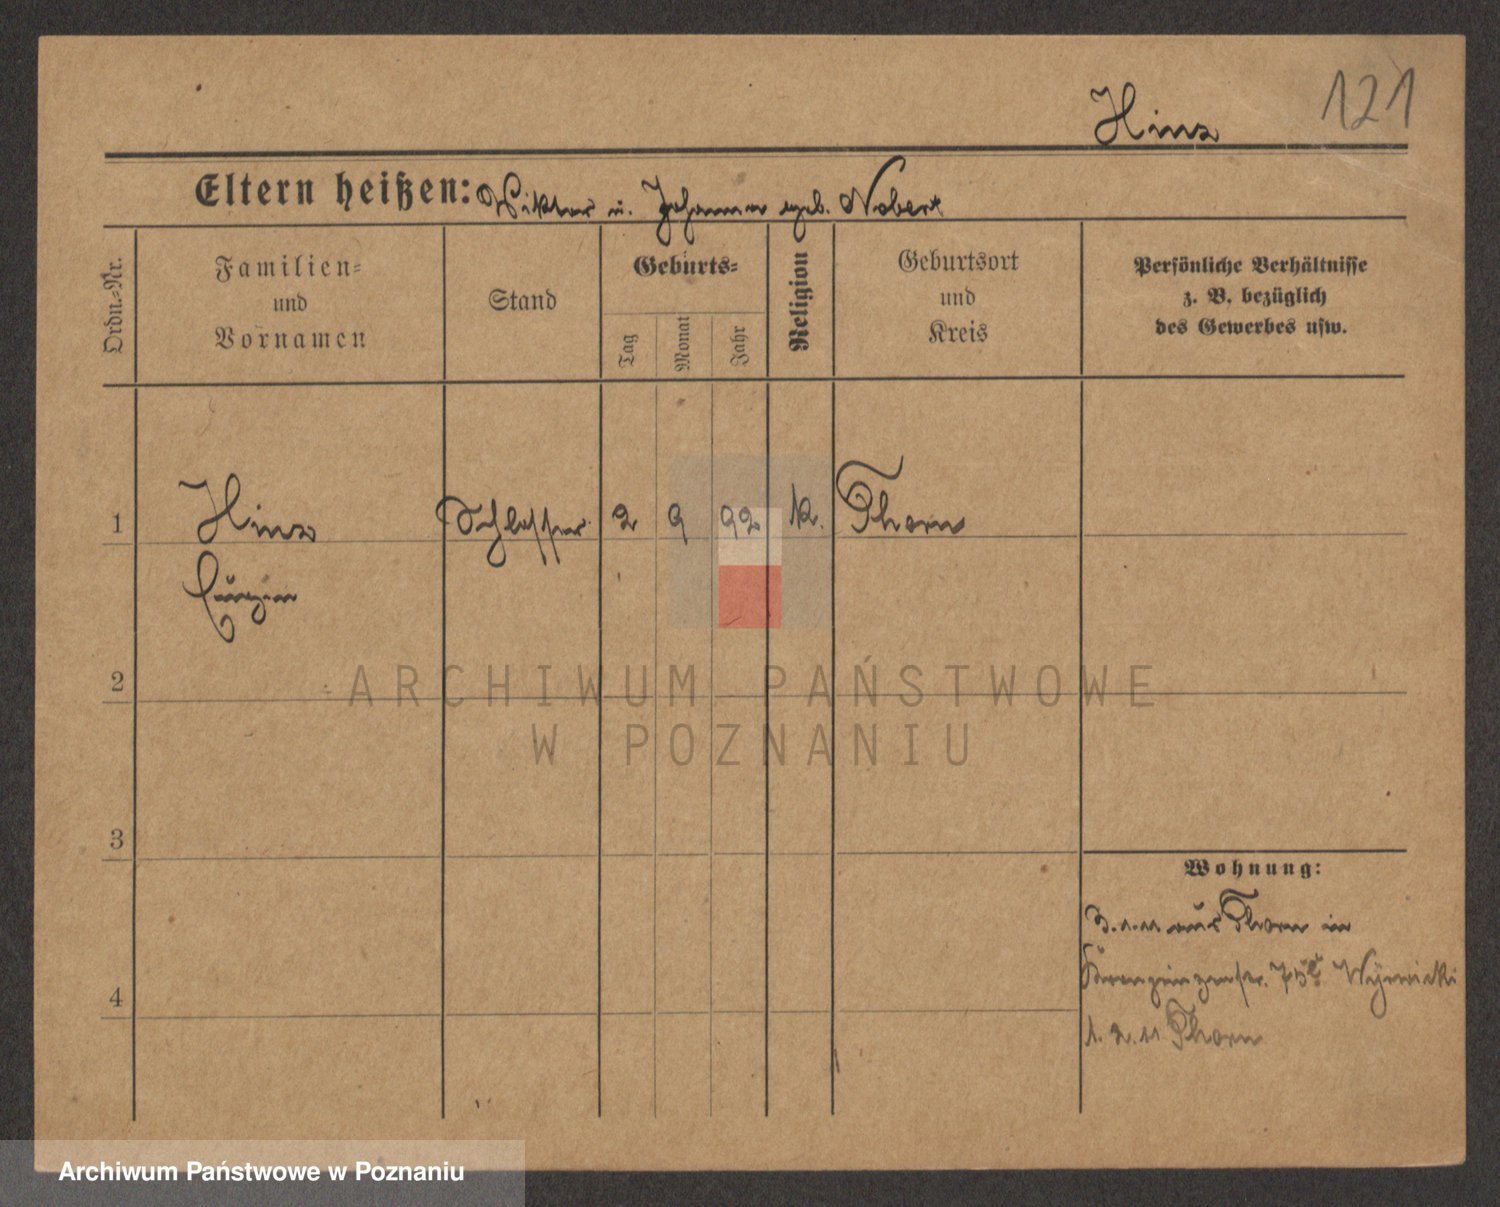 121
Hinz
Eltern heißen: Viktor u. Johanna geb. Nobert
Ordn.-Nr.
Familien-
und
Vornamen
Stand
Geburts-
Tag
Monat
Jahr
Religion
Geburtsort
und
Kreis
Persönliche Verhältnisse
z. B. bezüglich
des Gewerbes usw.
1 Hinz Schlosser 2 9 92 K. Thorn
2
ARCHIWUM PAŃSTWOWE
W POZNANIU
3
Wohnung:
3.1.11 aus Thorn in
Kronprinzenstr. 75
4
1.2.11 Thorn
Archiwum Państwowe w Poznaniu